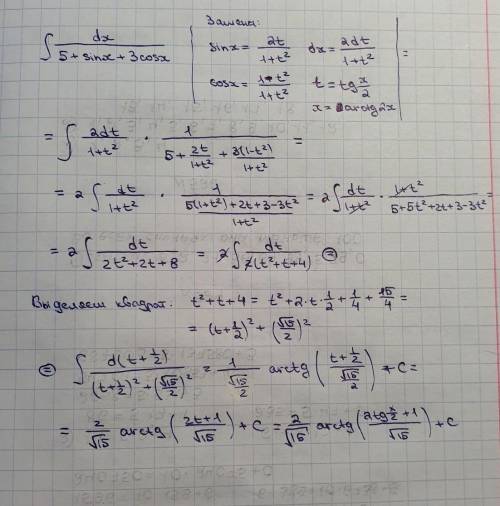 ∫ dx / (5 + sinx + 3cosx) | Замена: sinx = 2t / (1+t²) dx = 2dt / (1+t²) | =
cosx = (1-t²) / (1+t²) t = tg x/2
x = arctg2x
= ∫ 2dt / (1+t²) · 1 / (5 + 2t/(1+t²) + 3(1-t²)/(1+t²)) =
= 2 ∫ dt / (1+t²) · 1 / ((5(1+t²)+2t+3-3t²) / (1+t²)) = 2 ∫ dt / (1+t²) · (1+t²) / (5+5t²+2t+3-3t²) =
= 2 ∫ dt / (2t²+2t+8) = 2 ∫ dt / (2(t²+t+4)) ⊜
Выделяем квадрат: t²+t+4 = t²+2·t·1/2 + 1/4 + 15/4 =
= (t+1/2)² + (√15/2)²
⊜ ∫ d(t+1/2) / ((t+1/2)² + (√15/2)²) = 1 / (√15/2) arctg ((t+1/2) / (√15/2)) + C =
= 2/√15 arctg ((2t+1)/√15) + C = 2/√15 arctg ((2tg x/2 + 1)/√15) + C